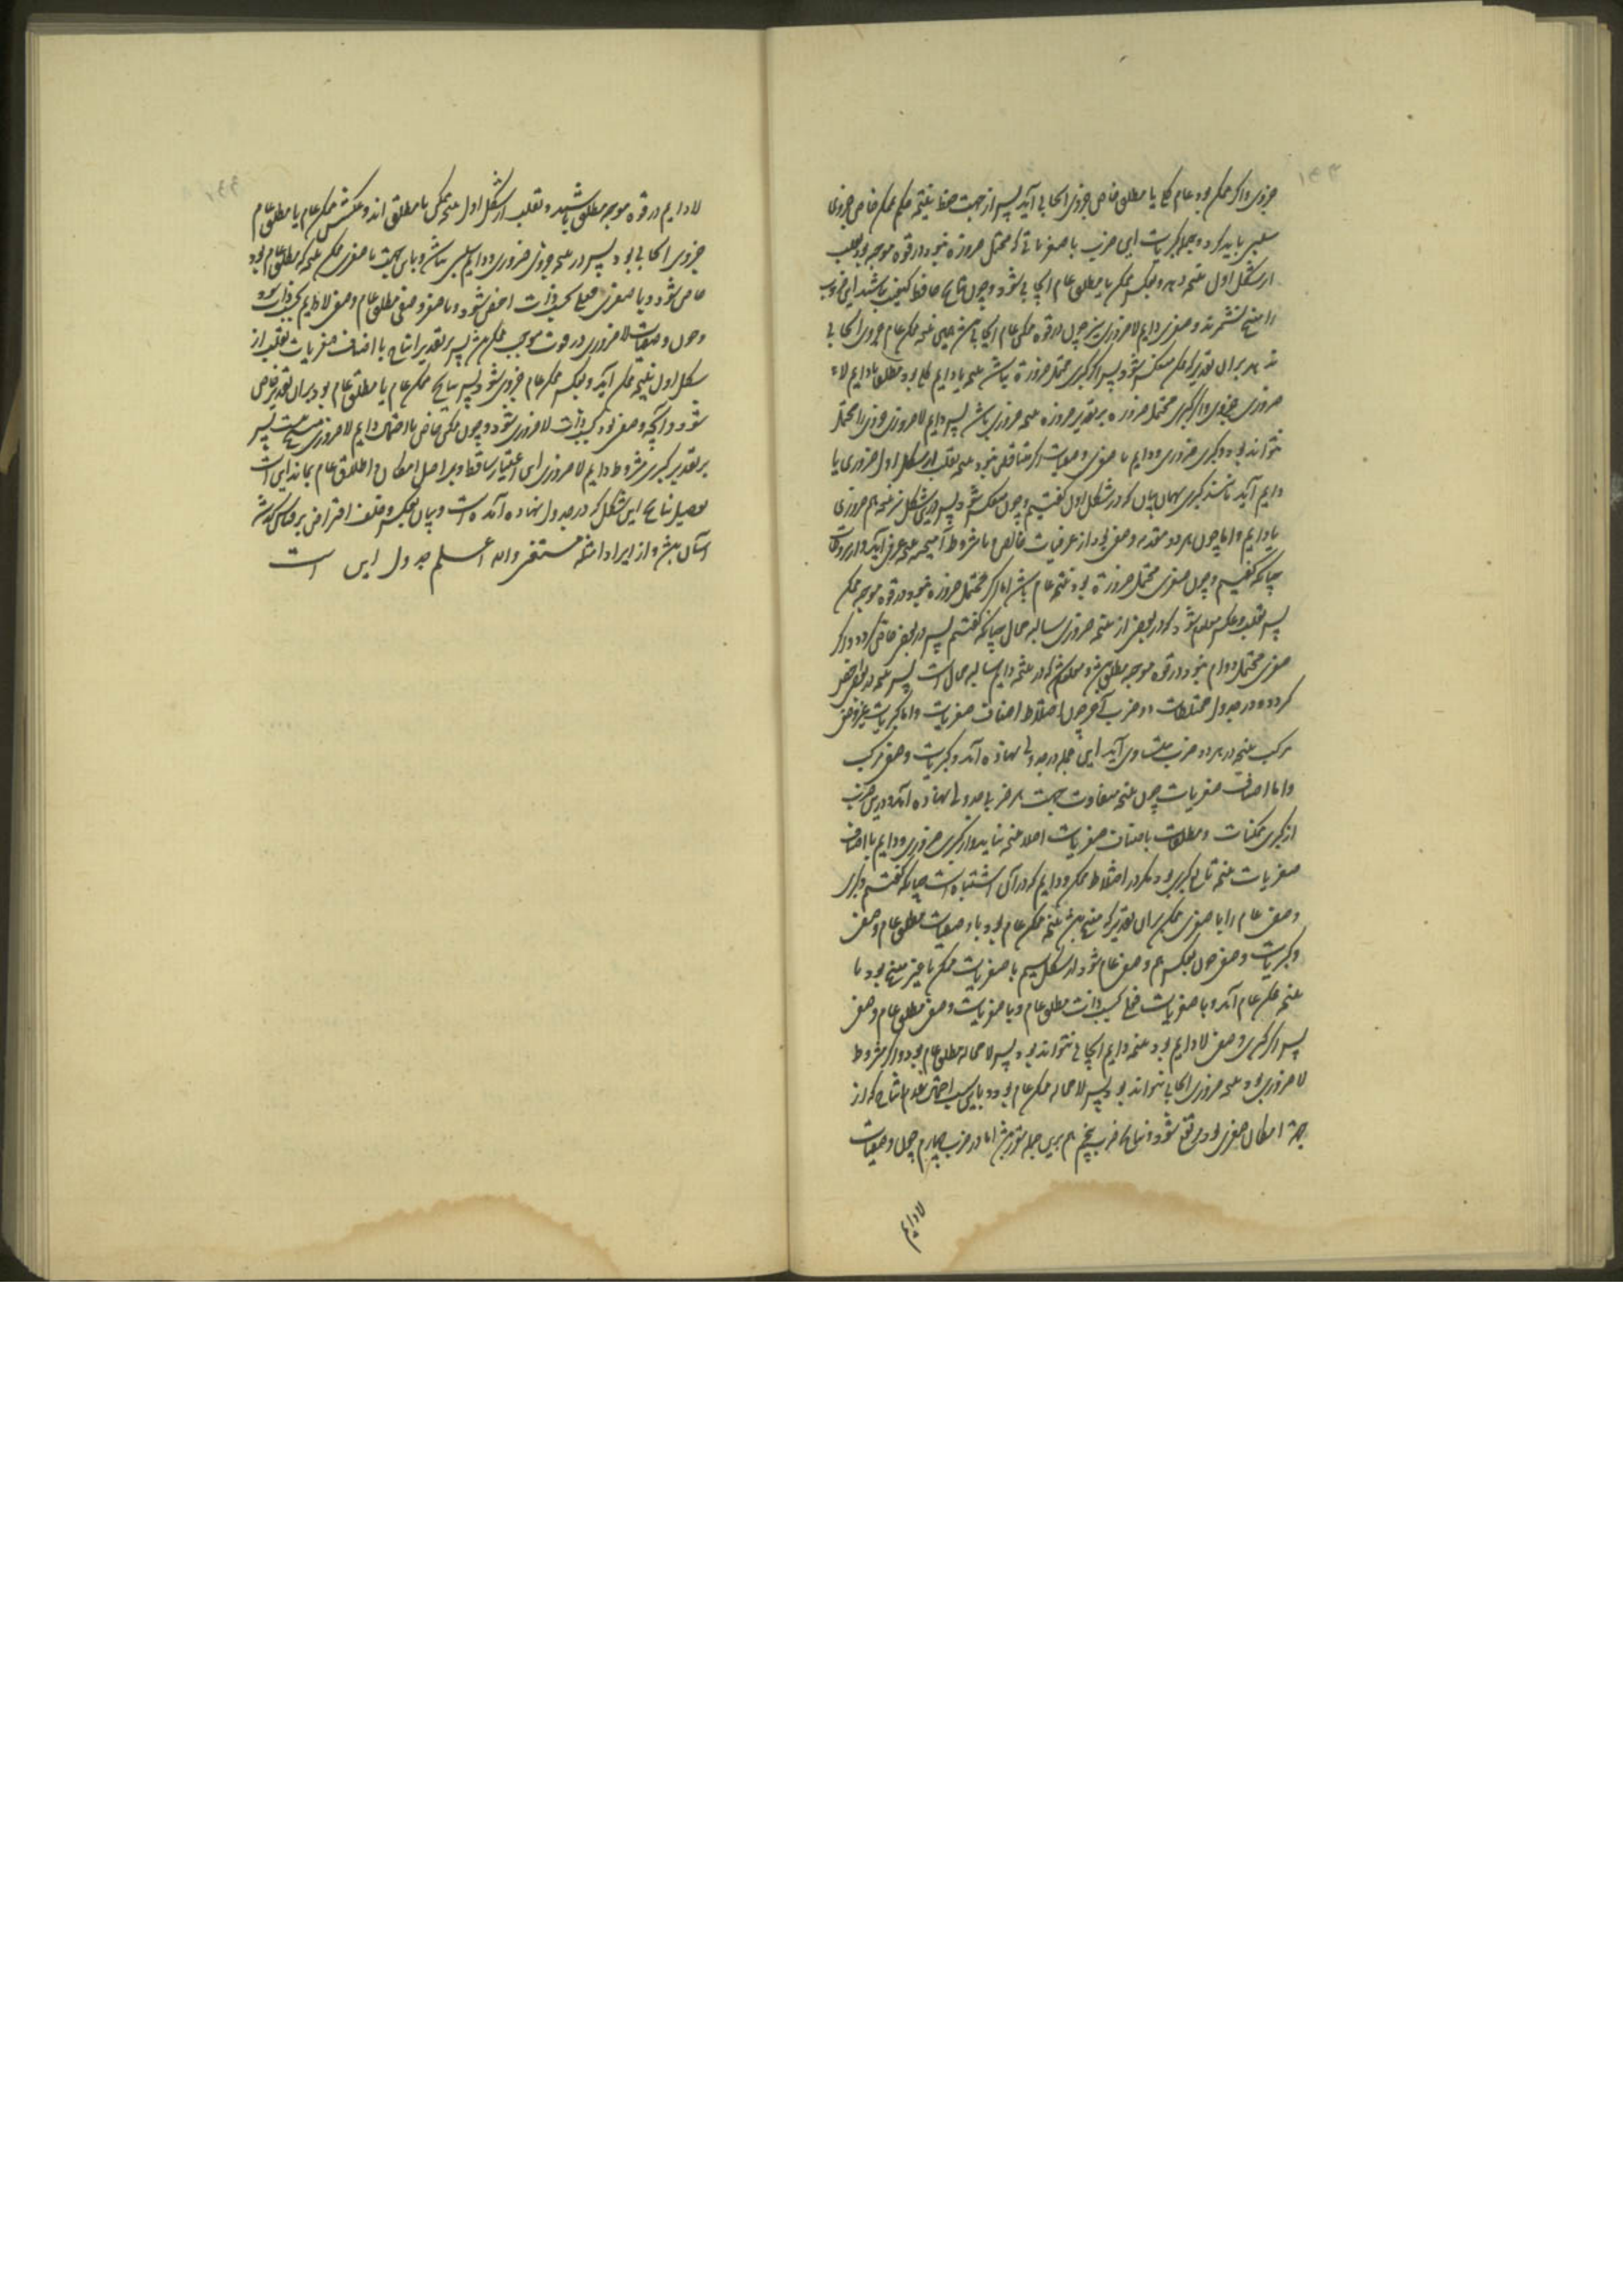 جزوی و اگر ممکن بود عام کلی یا مطلق خاص جزوی ایجابی آید پس از جهت حفظ نتیجه حکم ممکن خاص جزوی
سلبی باید کرد و جمله کبریات این ضرب با صغریاتی که محتمل ضرورة نبود در قوه موجبه بود بقلب
از شکل اول نتیجه دهد و بعکس ممکن یا مطلق عام ایجابی شود و چون نتایج حافظ کیفیت نباشد این ضروب
را منتج نشمرند و صغری دایم لاضروری نیز چون در قوه ممکن عام ایجابی
بر آن تقدیر که ممکن منعکس شود پس اگر کبری محتمل ضرورة باشد نتیجه یا دایم کلی بود مطلقا یا دایم لا
ضروری جزوی و اگر کبری محتمل ضرورة بر تقدیر ضرورة نتیجه ضروری باشد پس دایم لاضروری جزوی را محتمل
نتواند بود و کبری ضروری و دایم با صغری وصفیات اگر متناقض نبود نتیجه بقلب از شکل اول ضروری یا
دایم آید باشد کبری بهمان بیان که در شکل اول گفتیم و چون منعکس شود پس درین شکل نیز نتیجه هم ضروری
یا دایم و اما چون هر دو مقدمه وصفی بود از عرفیات خالص یا مشروط آمیخته نتیجه عرفی آید
چنانکه گفتیم و چون صغری محتمل ضرورة بود نتیجه عام باشد اما اگر محتمل ضرورة نبود در قوه موجبه ممکن
پس بقلب و عکس معلوم شود که در بعضی از نتیجه ضروری سالبه محال چنانکه گفتیم پس در بعض خاص گردد و اگر
صغری محتمل دوام نبود در قوه موجبه مطلق باشد و معلوم شد که در نتیجه دایم سالبه محال است پس نتیجه در بعض اخص
گردد و در جدول مختلطات دو ضرب آخر چون اختلاط اصناف صغریات و اما کبریات غیر وصفی
مرکب نتیجه در هر دو ضرب متساوی آید این جمله در جدولی نهاده آمد و کبریات وصفی مرکب
و اما اصناف صغریات چون نتیجه متفاوت است هر ضربی جدولی نهاده آمد و درین ضرب
از کبری ممکنات و مطلقات با اصناف صغریات اصلا نتیجه نیاید و از کبری ضروری و دایم با اصناف
صغریات نتیجه تابع کبری بود مگر در اختلاط ممکن و دایم که در آن اشتباه است چنانکه گفتیم و کبری
وصفی عام را با صغری ممکن بر آن تقدیر که منتج باشد نتیجه ممکن عام بود و با وصفیات مطلق عام وصفی
و کبریات وصفی چون بعکس هم وصفی عام شود از شکل سیم با صغریات ممکن نیز منتج بود با
نتیجه ممکن عام آمد و با صغریات فعلی بحسب ذات مطلق عام و با صغریات وصفی مطلق عام وصفی
پس اگر کبری وصفی لادایم بود نتیجه دایم ایجابی نتواند بود پس لا محاله مطلق عام بود و اگر مشروط
لاضروری بود نتیجه ضروری ایجابی نتواند بود پس لا محاله ممکن عام بود و باین سبب احتمال عدم انتاج که از
جهة امکان صغری بود مرتفع شود و نتایج ضرب پنجم هم برین جمله متوجه باشد اما در ضرب چهارم چون وصفیات
لادایم
لادایم در قوه موجبه مطلق باشند و بقلب از شکل اول نتیجه ممکن یا مطلق اند و عکسش ممکن عام یا مطلق عام
جزوی ایجابی بود پس در نتیجه جزوی ضروری و دایم سلبی نباشد و باین جهت با صغری ممکن نتیجه که مطلق عام بود
خاص شود و با صغری فعلی بحسب ذات اخص شود و با صغری وصفی مطلق عام وصفی لادایم بحسب ذات شود
و چون وصفیات لاضروری در قوت موجب ممکن باشد پس بر تقدیر انتاج با اصناف صغریات بقلب از
شکل اول نتیجه ممکن آید و بعکس ممکن عام جزوی شود پس نتایج که ممکن عام یا مطلق عام بود بر آن تقدیر خاص
شود و آنچه وصفی بود بحسب ذات لاضروری شود و چون ممکن خاص با احتمال دایم لاضروری منتج نیست پس
بر تقدیر کبری مشروط دایم لاضروری این اعتبار ساقط و بر اصل امکان و اطلاق عام بماند این است
تفصیل نتایج این شکل که در جدول نهاده آمده است و بیان بعکس و خلف و افتراض بر قیاس گذشته
آسان باشد و از ایراد امثله مستغنی والله اعلم جدول این است